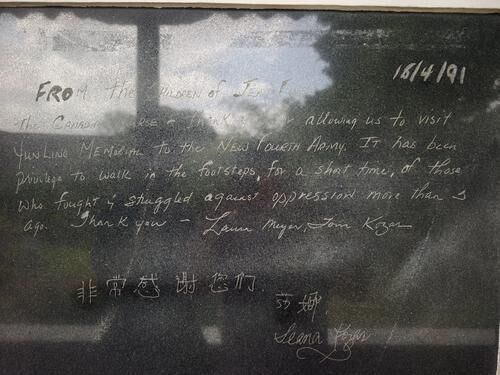 16/4/91
FROM the CHILDREN of
The allowing us to visit
YUNLING MEMORIAL to the NEW FOURTH ARMY. IT has been
privilege to walk in the footsteps, for a short time, of those
who fought & struggled against oppression more than 5
ago. Thank you - Laura Meyer, Tom Kozar
非常感谢您们
莎娜
Leana Kozar